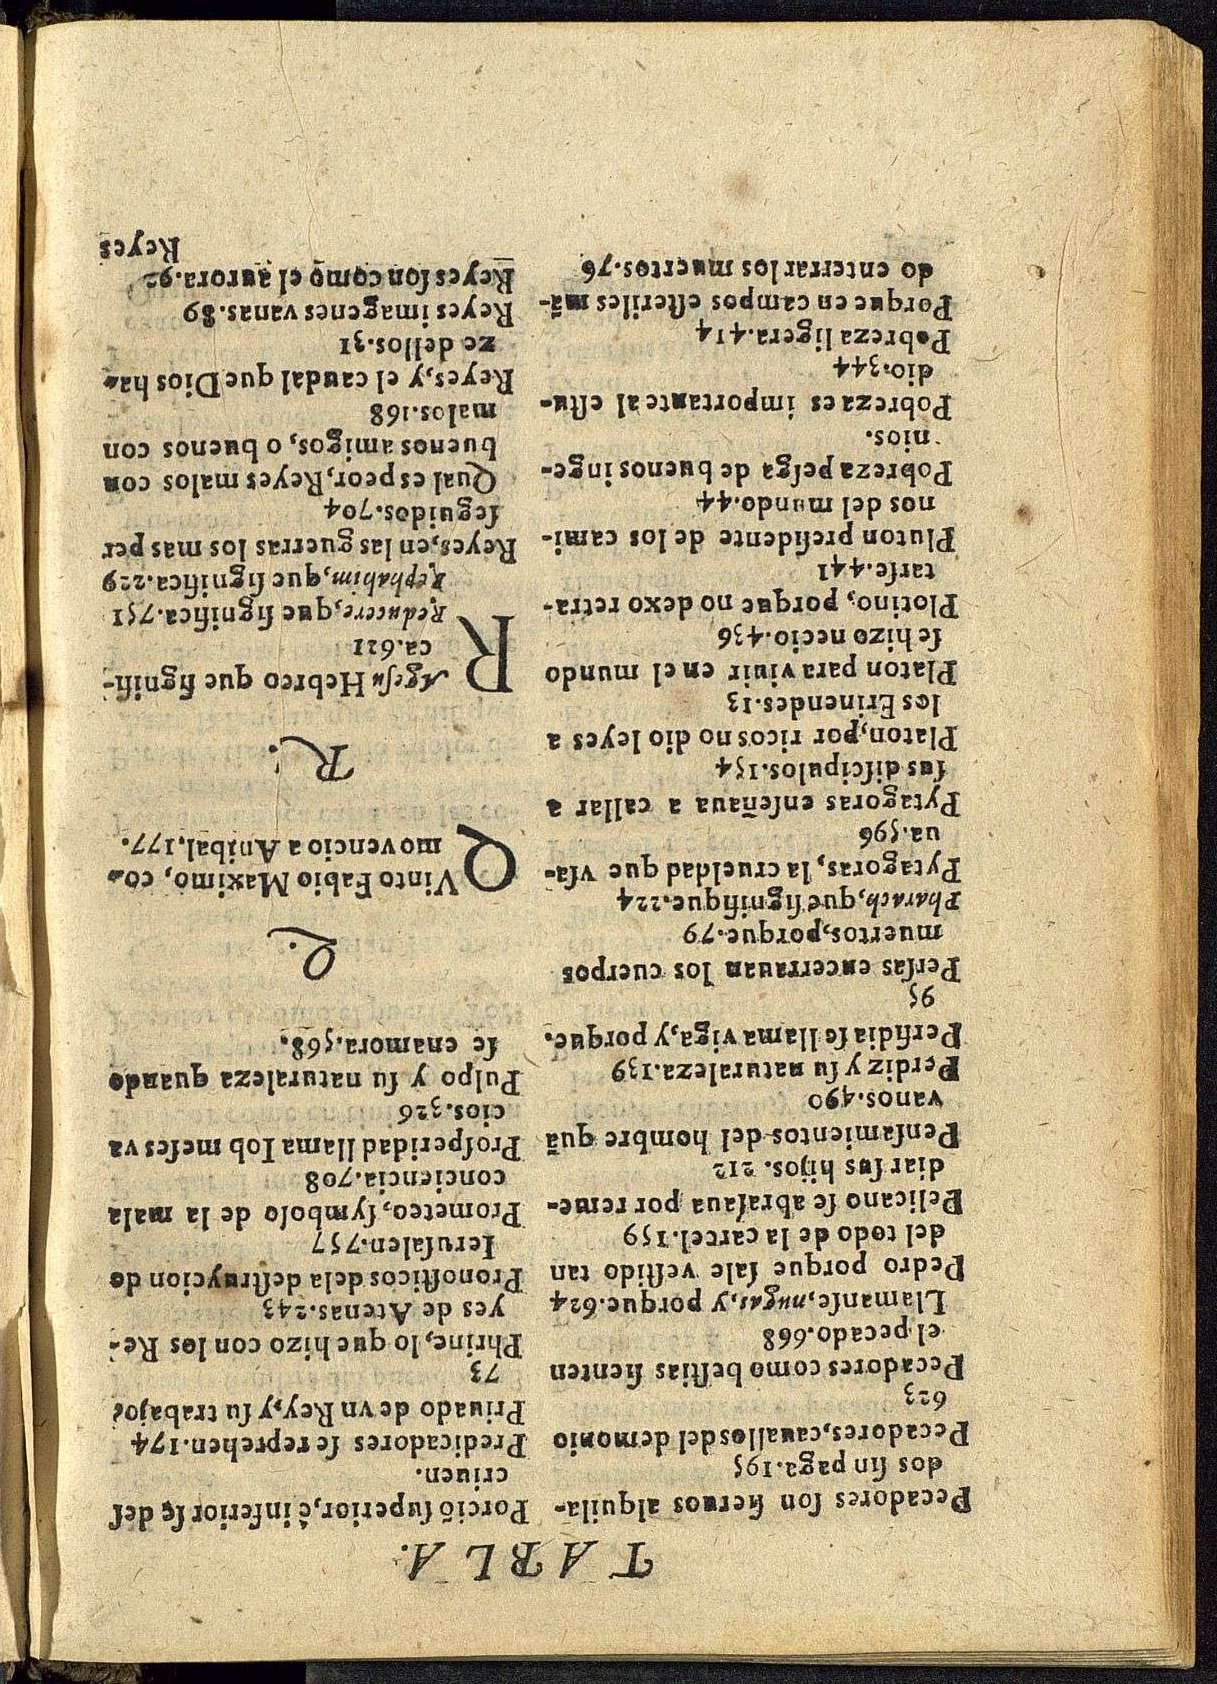 TABLA.
Pecadores son sieruos alquila-
dos sin paga.195
Pecadores, cauallos del demonio
623
Pecadores como bestias sienten
el pecado.668
Llamanse, nugas, y porque.624
Pedro porque sale vestido tan
del todo de la carcel.159
Pelicano se abrasaua por reme-
diar sus hijos. 212
Pensamientos del hombre quā
vanos.490
Perdiz y su naturaleza.139
Perfidia se llama viga, y porque.
95
Persas encerrauan los cuerpos
muertos, porque.79
Pharaoh, que signifique.224
Pytagoras, la crueldad que vsa-
ua.596
Pytagoras enseñaua a callar a
sus discipulos.154
Platon, por ricos no dio leyes a
los Erinendes.13
Platon para viuir en el mundo
se hizo necio.436
Plotino, porque no dexo retra-
tarse.441
Pluton presidente de los cami-
nos del mundo.44
Pobreza pesga de buenos inge-
nios.
Pobreza es importante al estu-
dio.344
Pobreza ligera.414
Porque en campos esteriles mā-
do enterrar los muertos.76
Porciō superior, è inferior se des
criuen.
Predicadores se reprehen.174
Priuado de vn Rey, y su trabajo?
73
Phrine, lo que hizo con los Re-
yes de Atenas.243
Pronosticos de la destruycion de
Ierusalen.757
Prometeo, symbolo de la mala
conciencia.708
Prosperidad llama Iob meses va
cios.326
Pulpo y su naturaleza quando
se enamora.568.
Q.
QVinto Fabio Maximo, co-
mo vencio a Anibal,177.
R.
RAgesu Hebreo que signifi-
ca.621
Reducere, que significa.751
Rephahim, que significa.229
Reyes, en las guerras los mas per
seguidos.704
Qual es peor, Reyes malos con
buenos amigos, o buenos con
malos.168
Reyes, y el caudal que Dios ha-
ze dellos.31
Reyes imagenes vanas.89
Reyes son como el aurora.92
Reyes